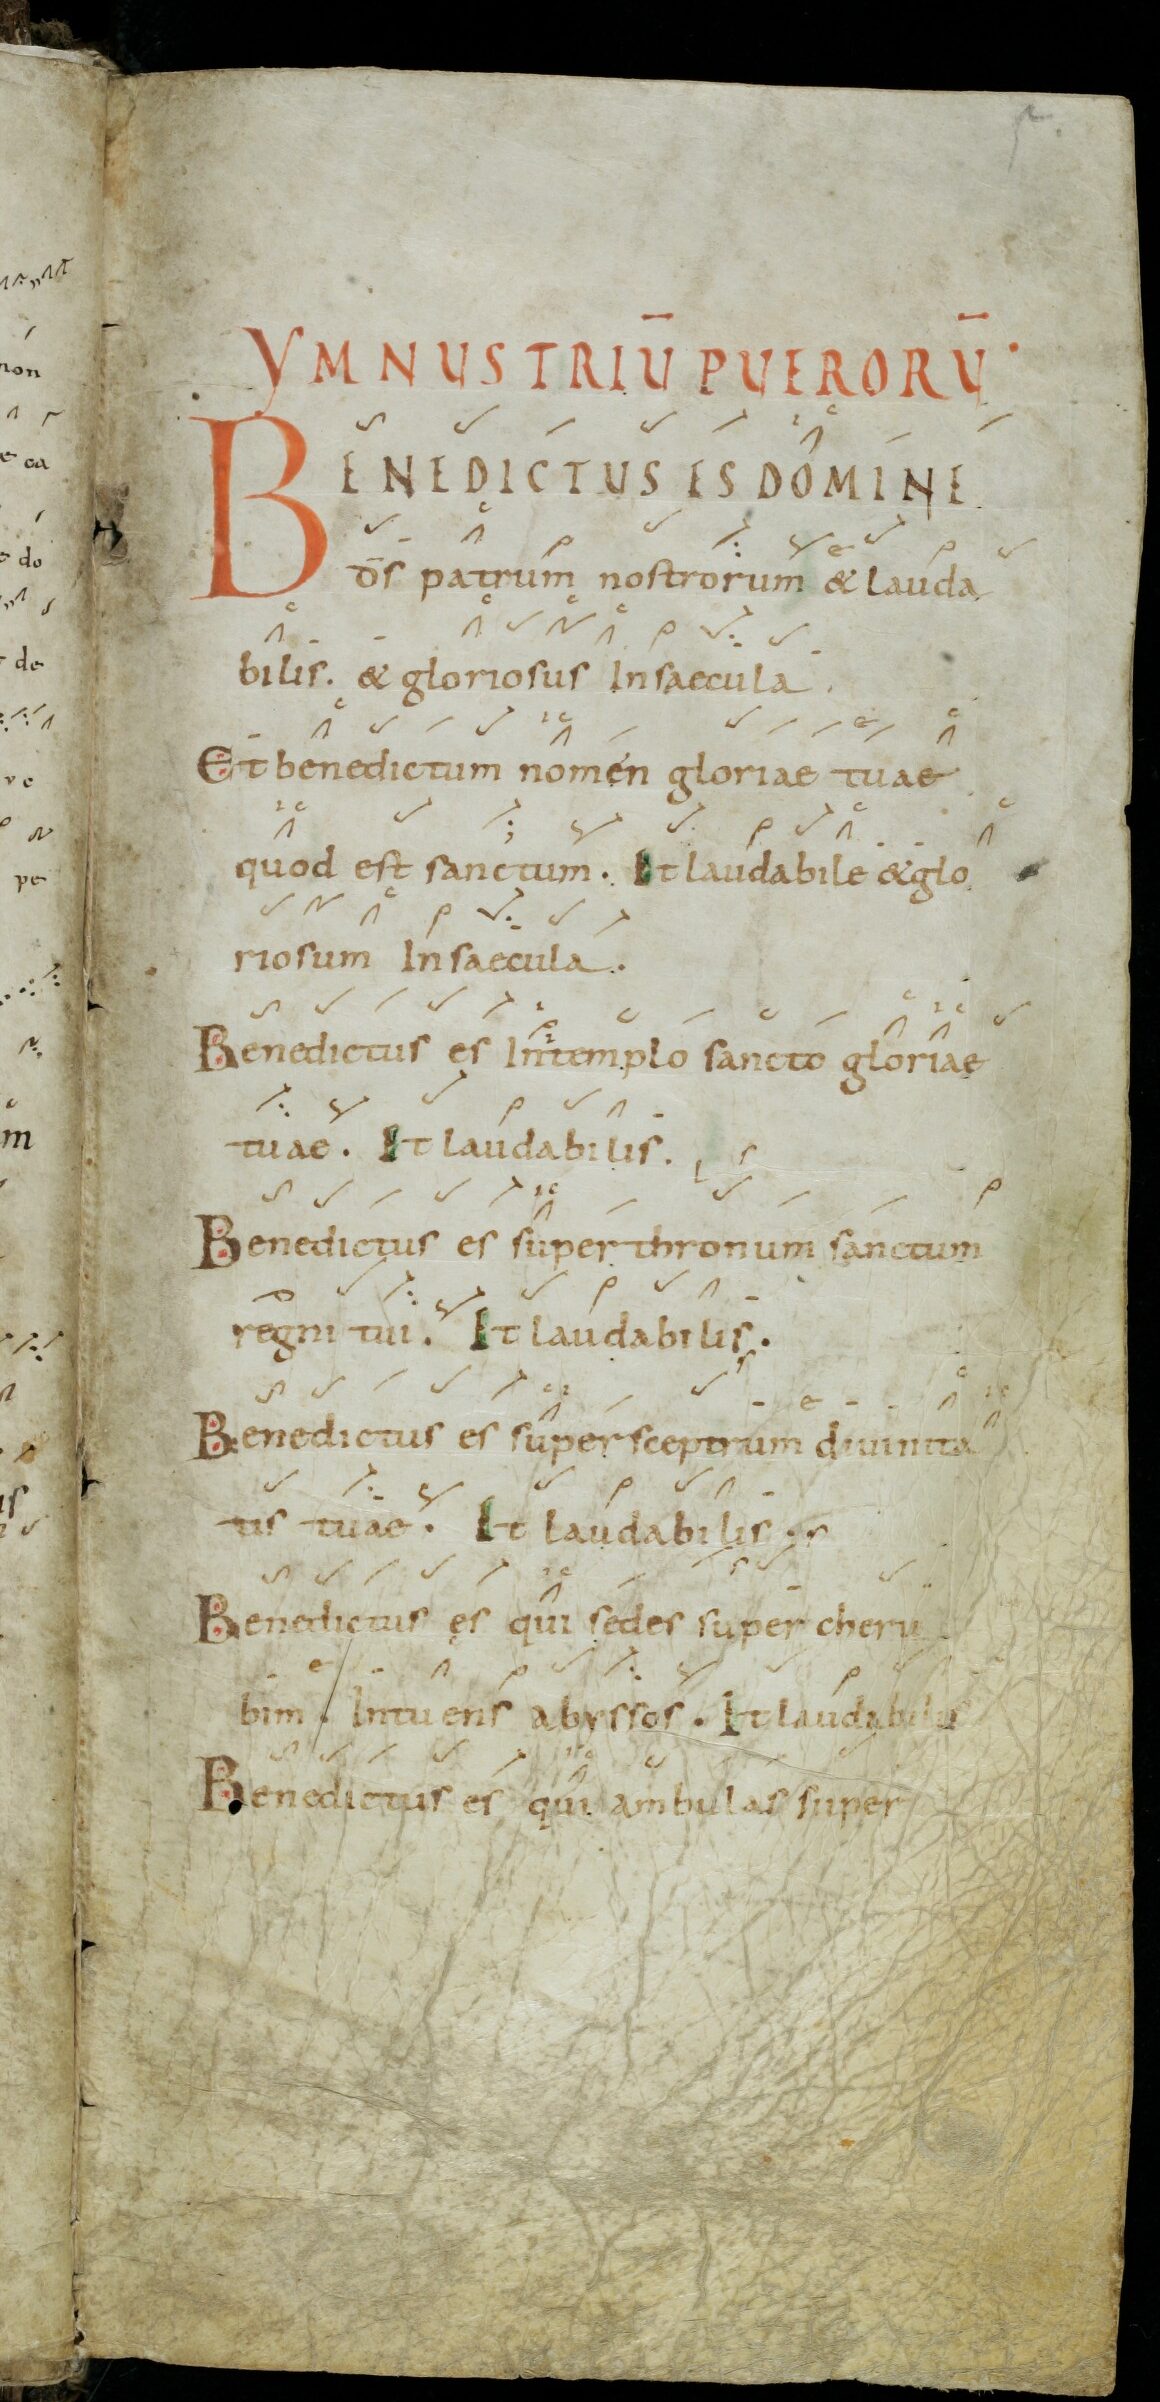 YMNUS TRIŪ PUERORŪ.
BENEDICTUS ES DOMINE
d̄s patrum nostrorum & lauda
bilis. & gloriosus In saecula.
Et benedictum nomen gloriae tuae
quod est sanctum. Et laudabile & glo
riosum In saecula.
Benedictus es In templo sancto gloriae
tuae. Et laudabilis.
Benedictus es super thronum sanctum
regni tui. Et laudabilis.
Benedictus es super sceptrum diuinita
tis tuae. Et laudabilis.
Benedictus es qui sedes super cheru
bim. Intuens abyssos. Et laudabilis
Benedictus es qui ambulas super
non
e ca
e do
de
ve
pe
m
us